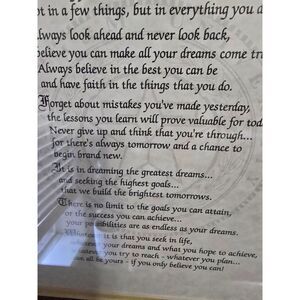 ot in a few things, but in everything you d
Always look ahead and never look back,
believe you can make all your dreams come tr
Always believe in the best you can be
and have faith in the things that you do.
Forget about mistakes you've made yesterday,
the lessons you learn will prove valuable for tod
Never give up and think that you're through...
for there's always tomorrow and a chance to
begin brand new.
It is in dreaming the greatest dreams...
and seeking the highest goals...
that we build the brightest tomorrows.
There is no limit to the goals you can attain,
or the success you can achieve...
your possibilities are as endless as your dreams.
Whatever it is that you seek in life,
whatever your dreams and what you hope to achieve,
whatever you try to reach - whatever you plan...
can all be yours - if you only believe you can!